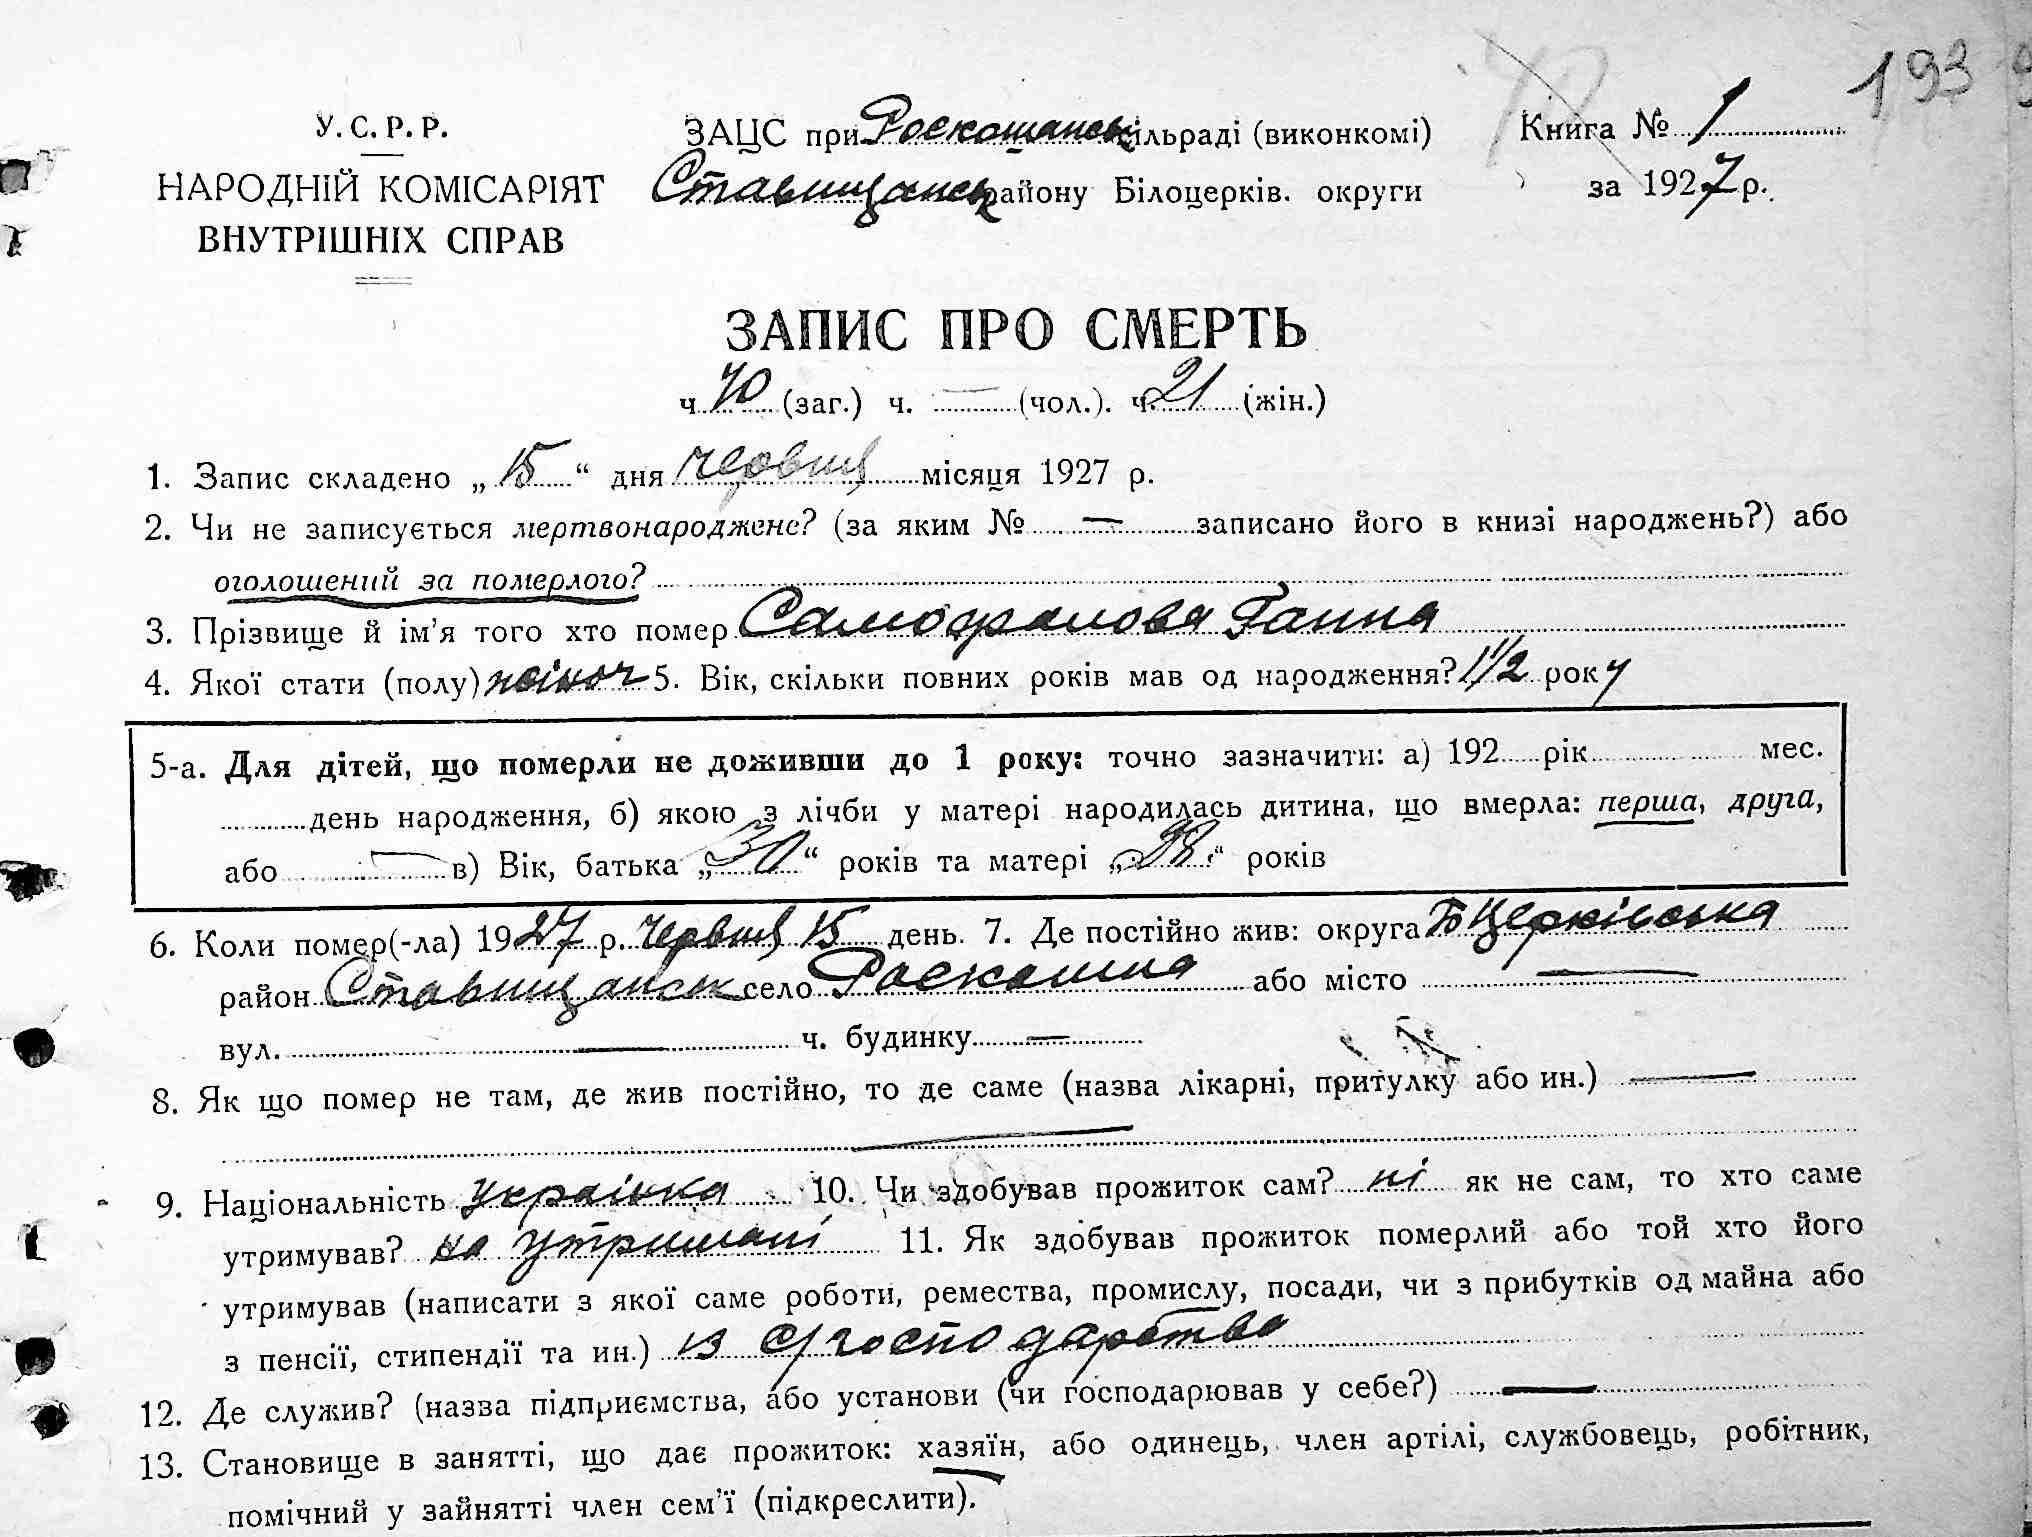 193
У.С.Р.Р.
НАРОДНІЙ КОМІСАРІЯТ
ВНУТРІШНІХ СПРАВ
ЗАЦС при Роскошанськ сільраді (виконкомі)
Ставищанськ району Білоцерків. округи
Книга № 1
за 1927 р.
ЗАПИС ПРО СМЕРТЬ
ч. 40 (заг.) ч. — (чол.). ч. 21 (жін.)
1. Запис складено „15“ дня червня місяця 1927 р.
2. Чи не записується мертвонароджене? (за яким № — записано його в книзі народжень?) або
оголошений за померлого?
3. Прізвище й ім'я того хто помер Самофалова Ганна
4. Якої стати (полу) жіноч 5. Вік, скільки повних років мав од народження? 1 1/2 року
5-а. Для дітей, що померли не доживши до 1 року: точно зазначити: а) 192 рік мес.
день народження, б) якою з лічби у матері народилась дитина, що вмерла: перша, друга,
або — в) Вік, батька „30“ років та матері „28“ років
6. Коли помер(-ла) 1927 р. червня 15 день. 7. Де постійно жив: округа Б Церківська
район Ставищанськ село Роскошна або місто —
вул. — ч. будинку —
8. Як що помер не там, де жив постійно, то де саме (назва лікарні, притулку або ин.) —
—
9. Національність українка 10. Чи здобував прожиток сам? ні як не сам, то хто саме
утримував? на утримані 11. Як здобував прожиток померлий або той хто його
утримував (написати з якої саме роботи, ремества, промислу, посади, чи з прибутків од майна або
з пенсії, стипендії та ин.) из с/господарства
12. Де служив? (назва підприємства, або установи (чи господарював у себе?) —
13. Становище в занятті, що дає прожиток: хазяїн, або одинець, член артілі, службовець, робітник,
помічний у зайнятті член сем'ї (підкреслити).